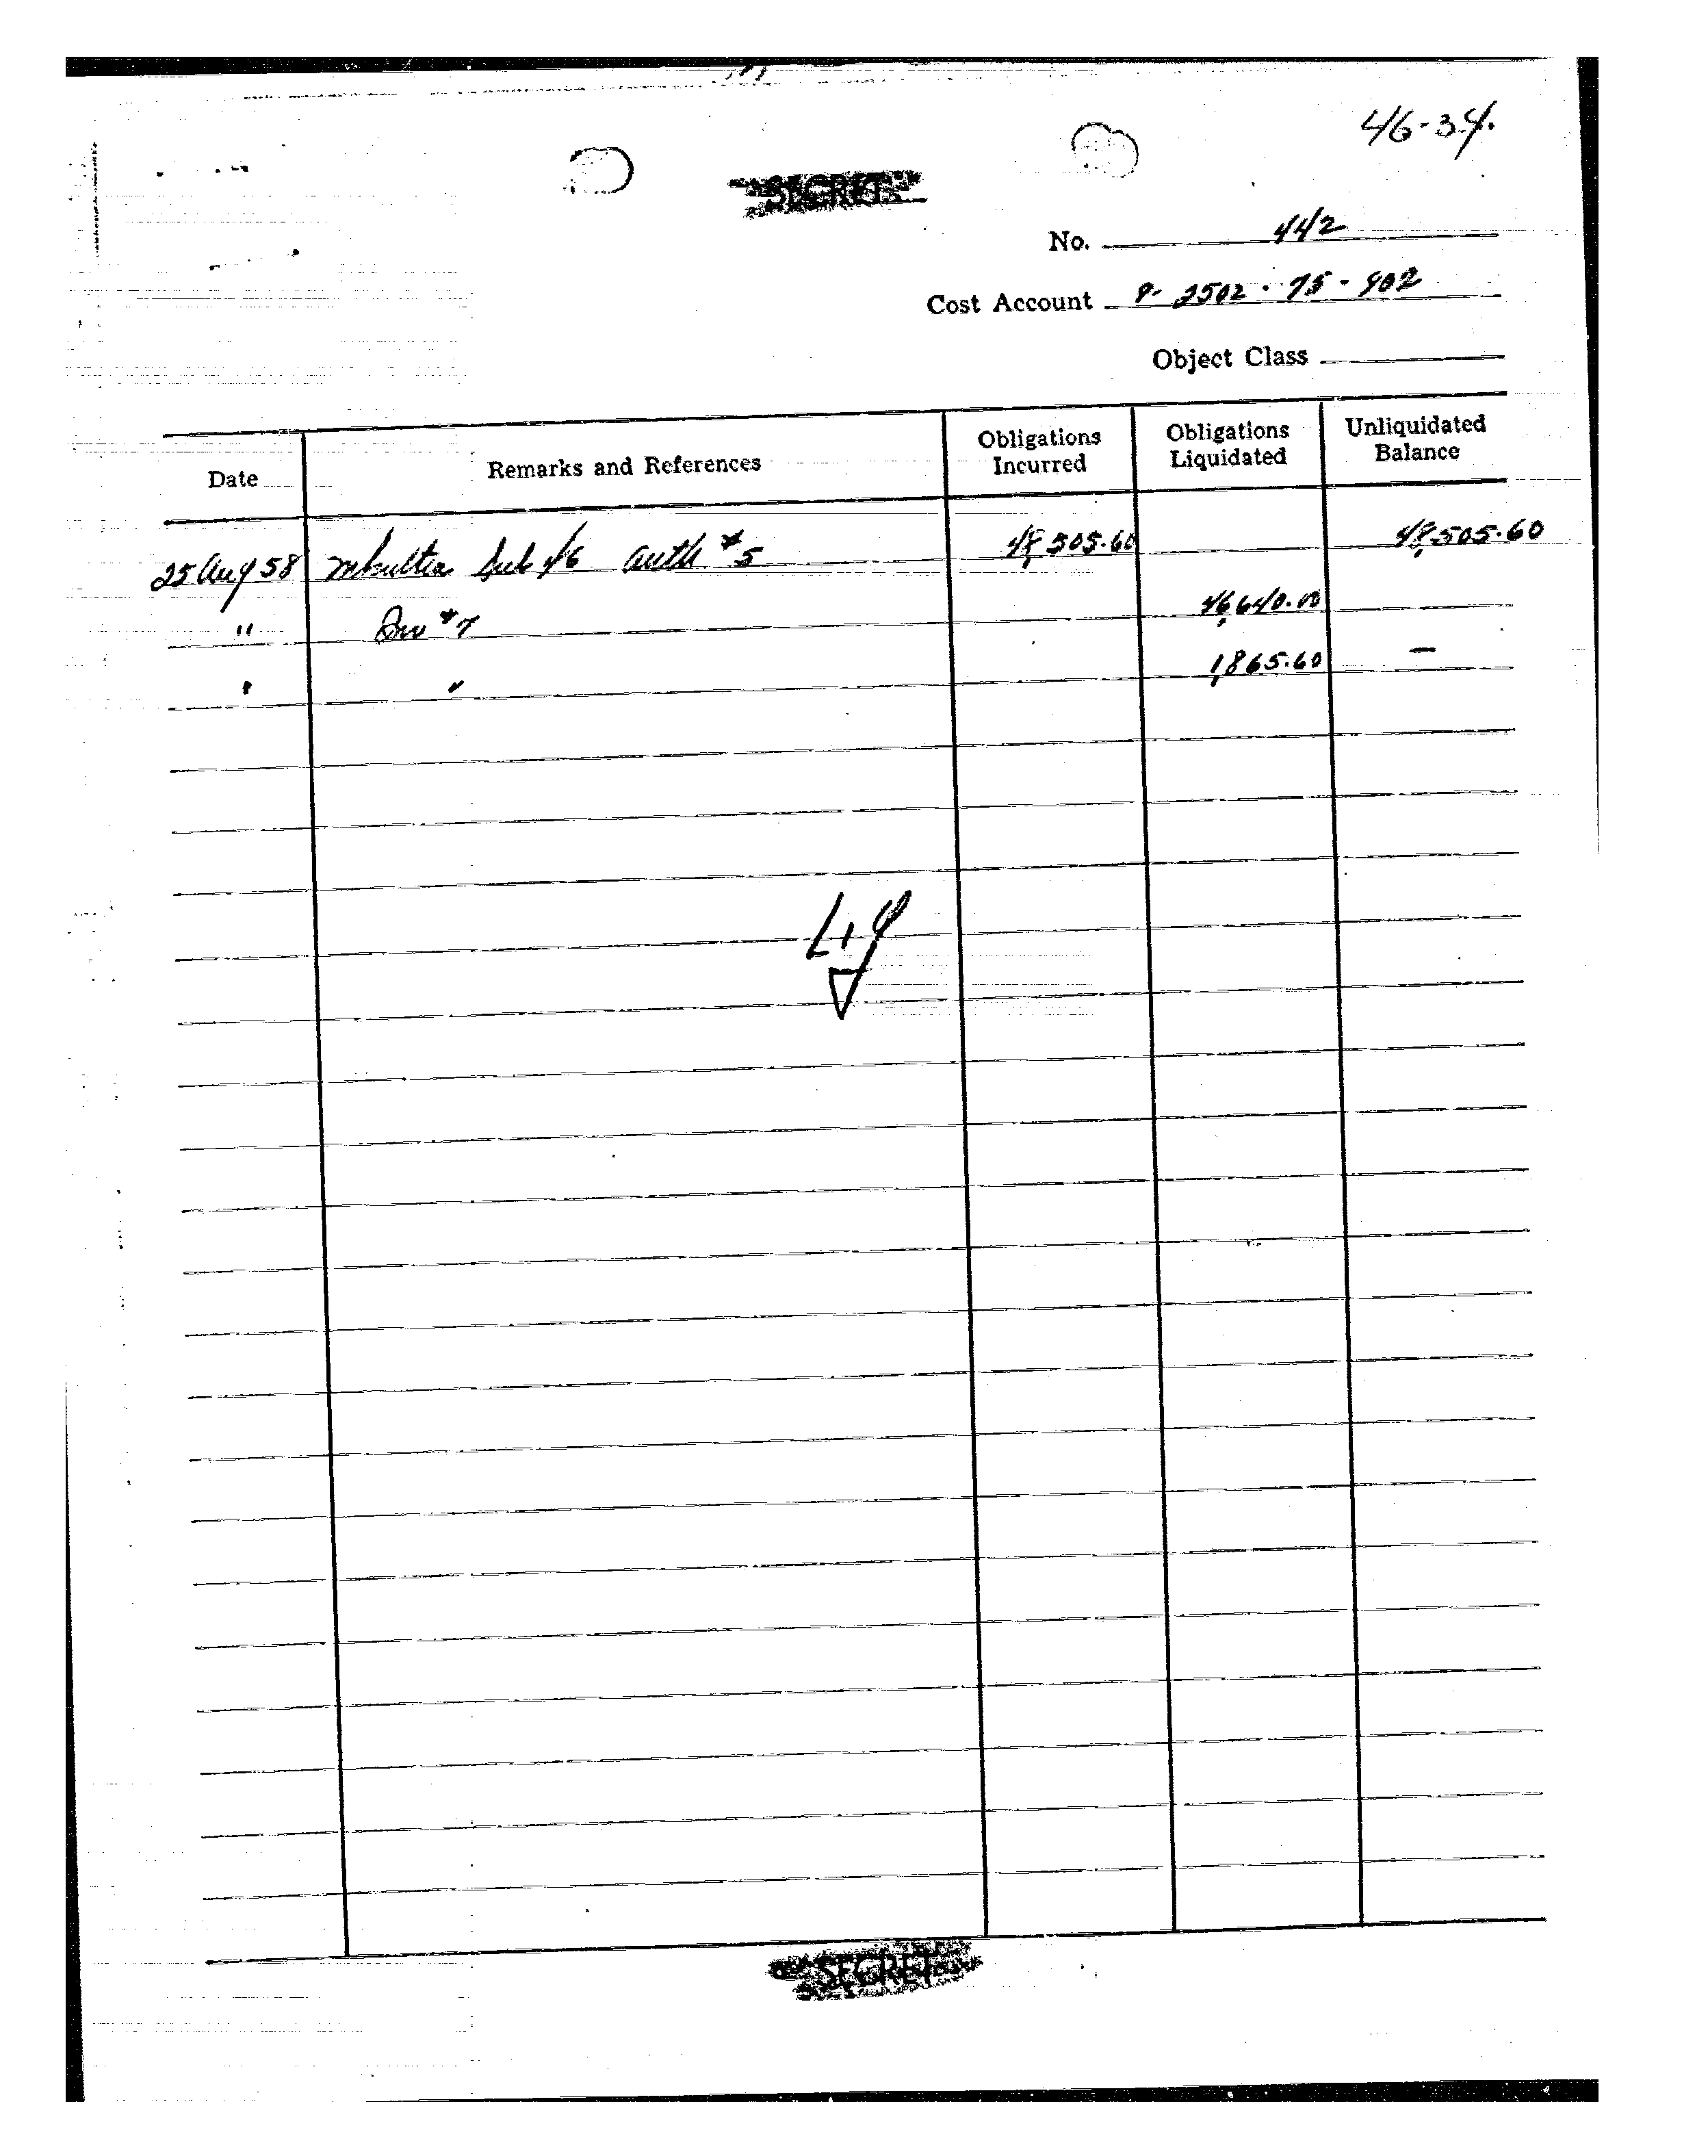 46-34.
SECRET
No. 442
Cost Account P- 2502 · 75 - 902
Object Class
Date Remarks and References Obligations Incurred Obligations Liquidated Unliquidated Balance
25 Aug 58 mkultra Sub 46 auth #5 48,505.60 48,505.60
" Inv #7 46,640.00
" " 1,865.60 —
Liq
SECRET